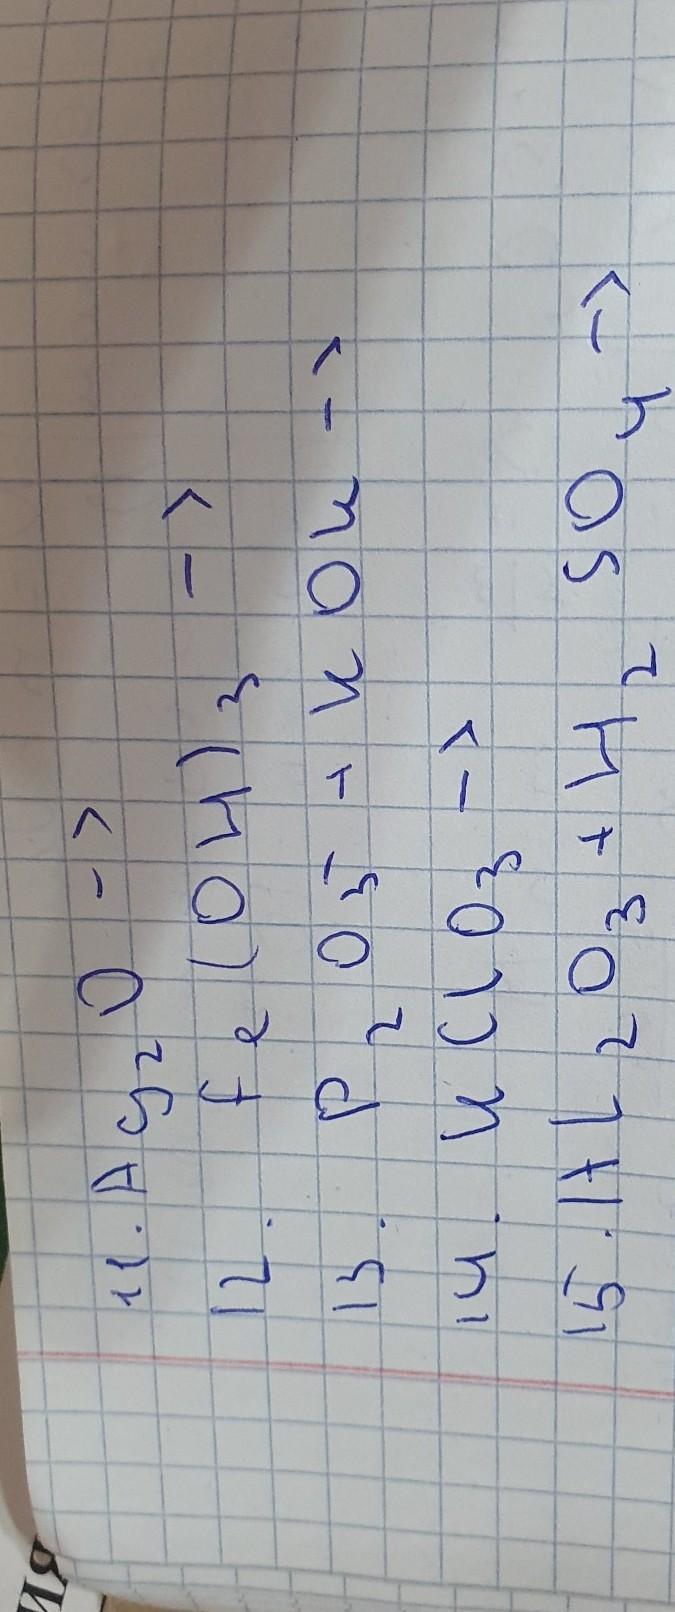 11. Ag2O ->
12. Fe(OH)3 ->
13. P2O5 + KOH ->
14. KClO3 ->
15. Al2O3 + H2SO4 ->
ИЯ